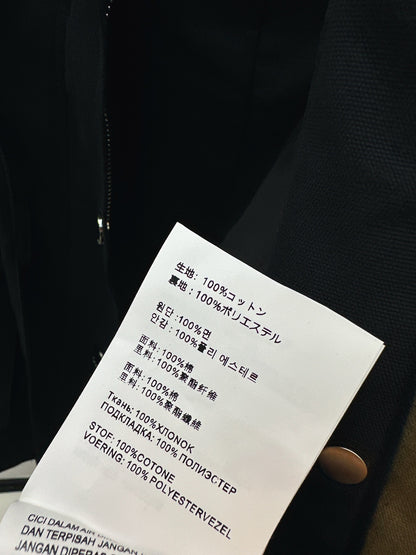 生地: 100%コットン
裏地 : 100%ポリエステル
원단 :100%면
안감 : 100%폴리 에스테르
面料:100%棉
里料:100%聚酯纤维
面料:100%棉
里料:100%聚酯纖維
Ткань: 100%ХЛОПОК
ПОДКЛАДКА: 100% ПОЛИЭСТЕР
STOF: 100%COTONE
VOERING: 100% POLYESTERVEZEL
CICI DALAM AIR
DAN TERPISAH JANGAN
JANGAN DIPERAS